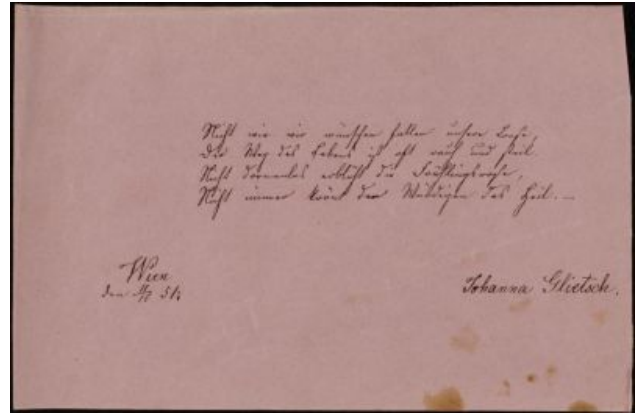 Nicht wie wir wünschen fallen unsere Loose,
Der Weg des Lebens ist oft rauh und steil.
Nicht dornenlos erblüht die Frühlingsrose,
Nicht immer krönt den Würdigen das Heil. —
Wien
den
Johanna Glietsch.